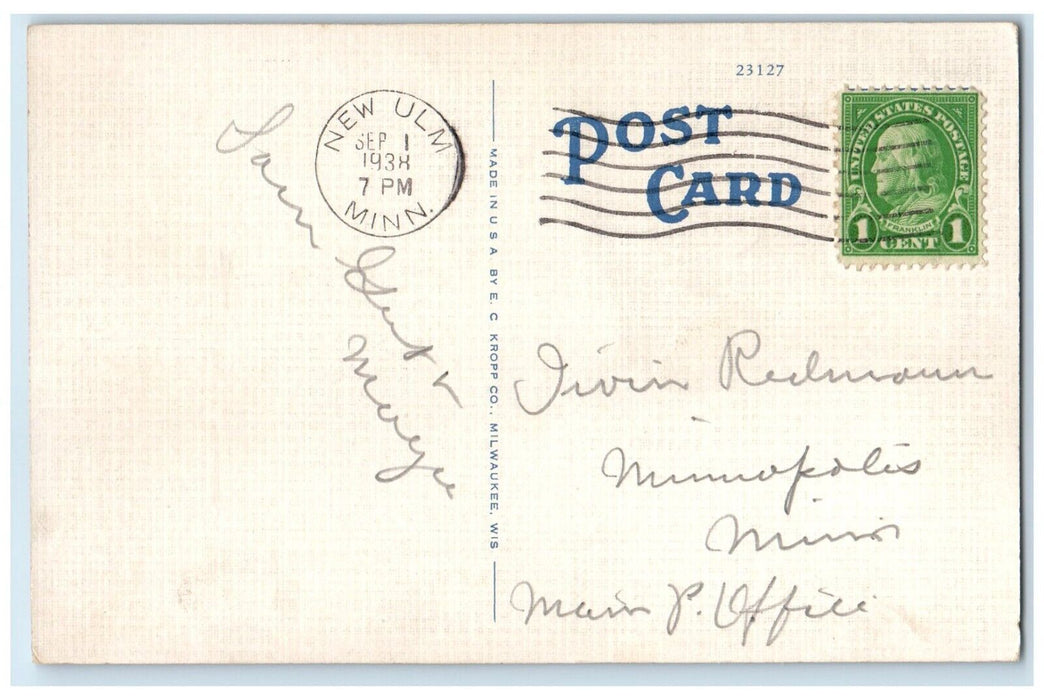 23127
POST CARD
NEW ULM
SEP 1
1938
7 PM
MINN.
UNITED STATES POSTAGE
FRANKLIN
1 CENT 1
MADE IN U S A BY E. C KROPP CO., MILWAUKEE, WIS
Gert &
Irvin Redmann
Minnopolis
Minn
Main P. Office